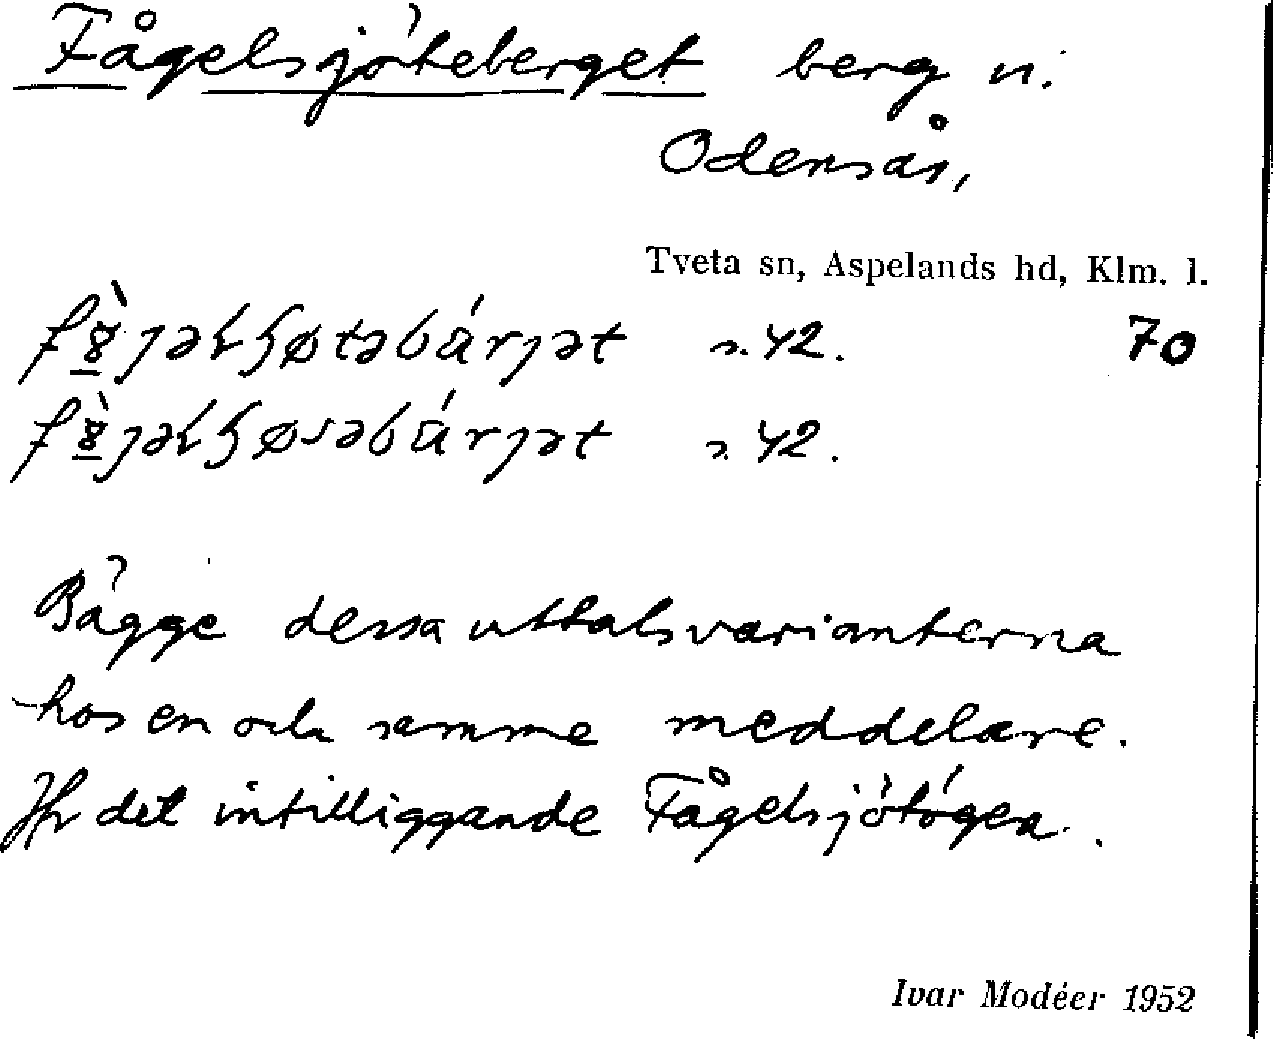 Fågelsjöteberget berg n.
Odensås,
Tveta sn, Aspelands hd, Klm. l.
s. 42. 70
s. 42.
Bägge dessa uttalsvarianterna
hos en och samme meddelare.
Jfr det intilliggande Fågelsjötögen.
Ivar Modéer 1952